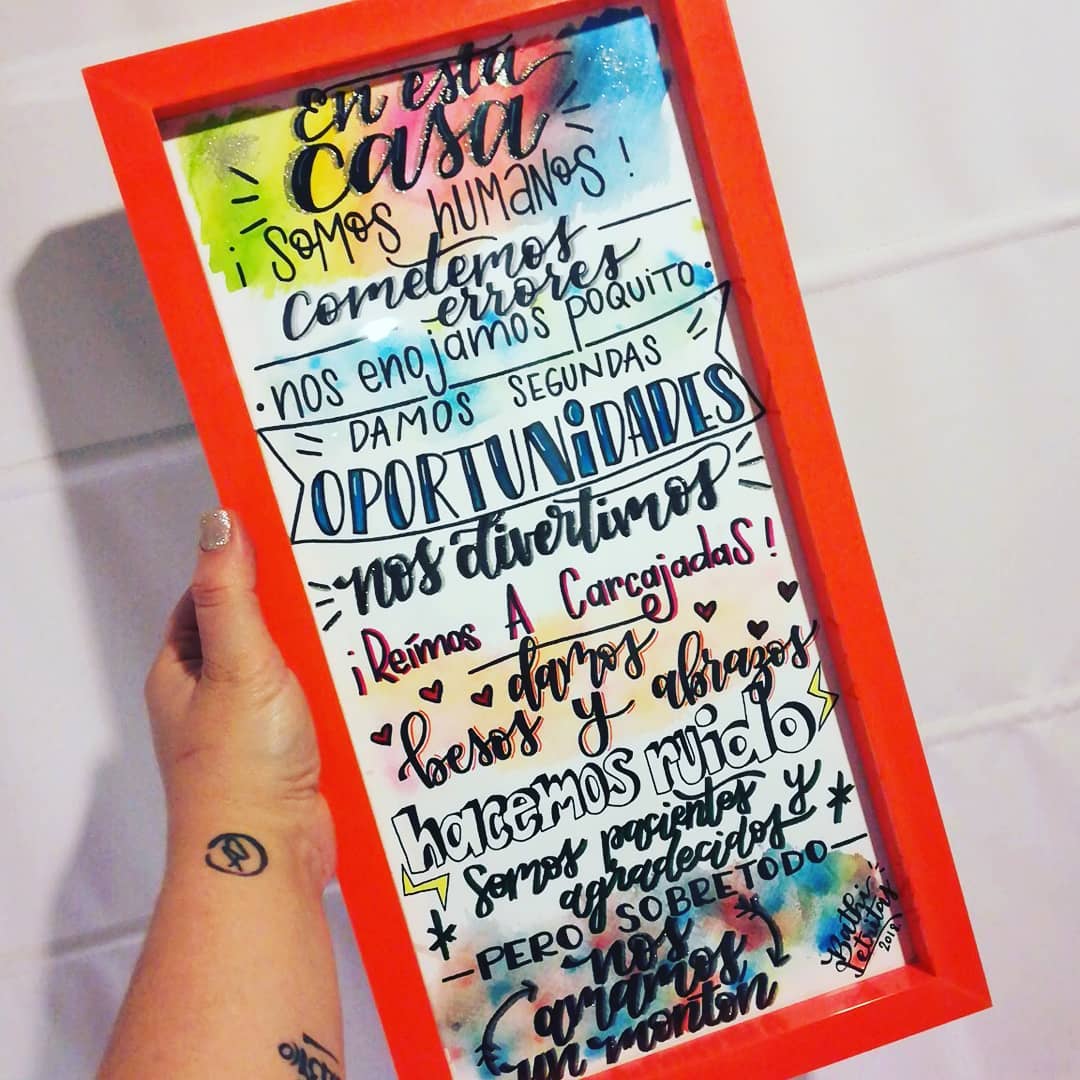 En esta
casa
¡Somos humanos!
Cometemos
errores
.nos enojamos poquito.
DAMOS SEGUNDAS
OPORTUNiDADES
nos divertimos
¡Reímos A CarcajadaS!
damos
besos y abrazos
hacemos ruido
Somos pacientes y
agradecidos
-PERO SOBRE TODO-
nos
amamos
un monton
Bathi
Letritas
2018